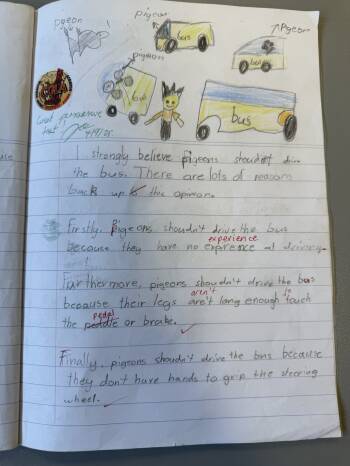 pigeon
pgeon
pigeon
bus
Pigeon
bus
pigeons
bus
bus
Great persuasive
text
4/9/25
I strongly believe pigeons shouldn't drive
the bus. There are lots of reasons
back up this opinion.
Firstly, Pigeons shouldn't drive the bus
experience
because they have no experience at driving
Furthermore, pigeons shouldn't drive the bus
aren't to
because their legs are't long enough touch
pedal
the peddle or brake.
Finally, pigeons shouldn't drive the bus because
they don't have hands to grip the steering
wheel.